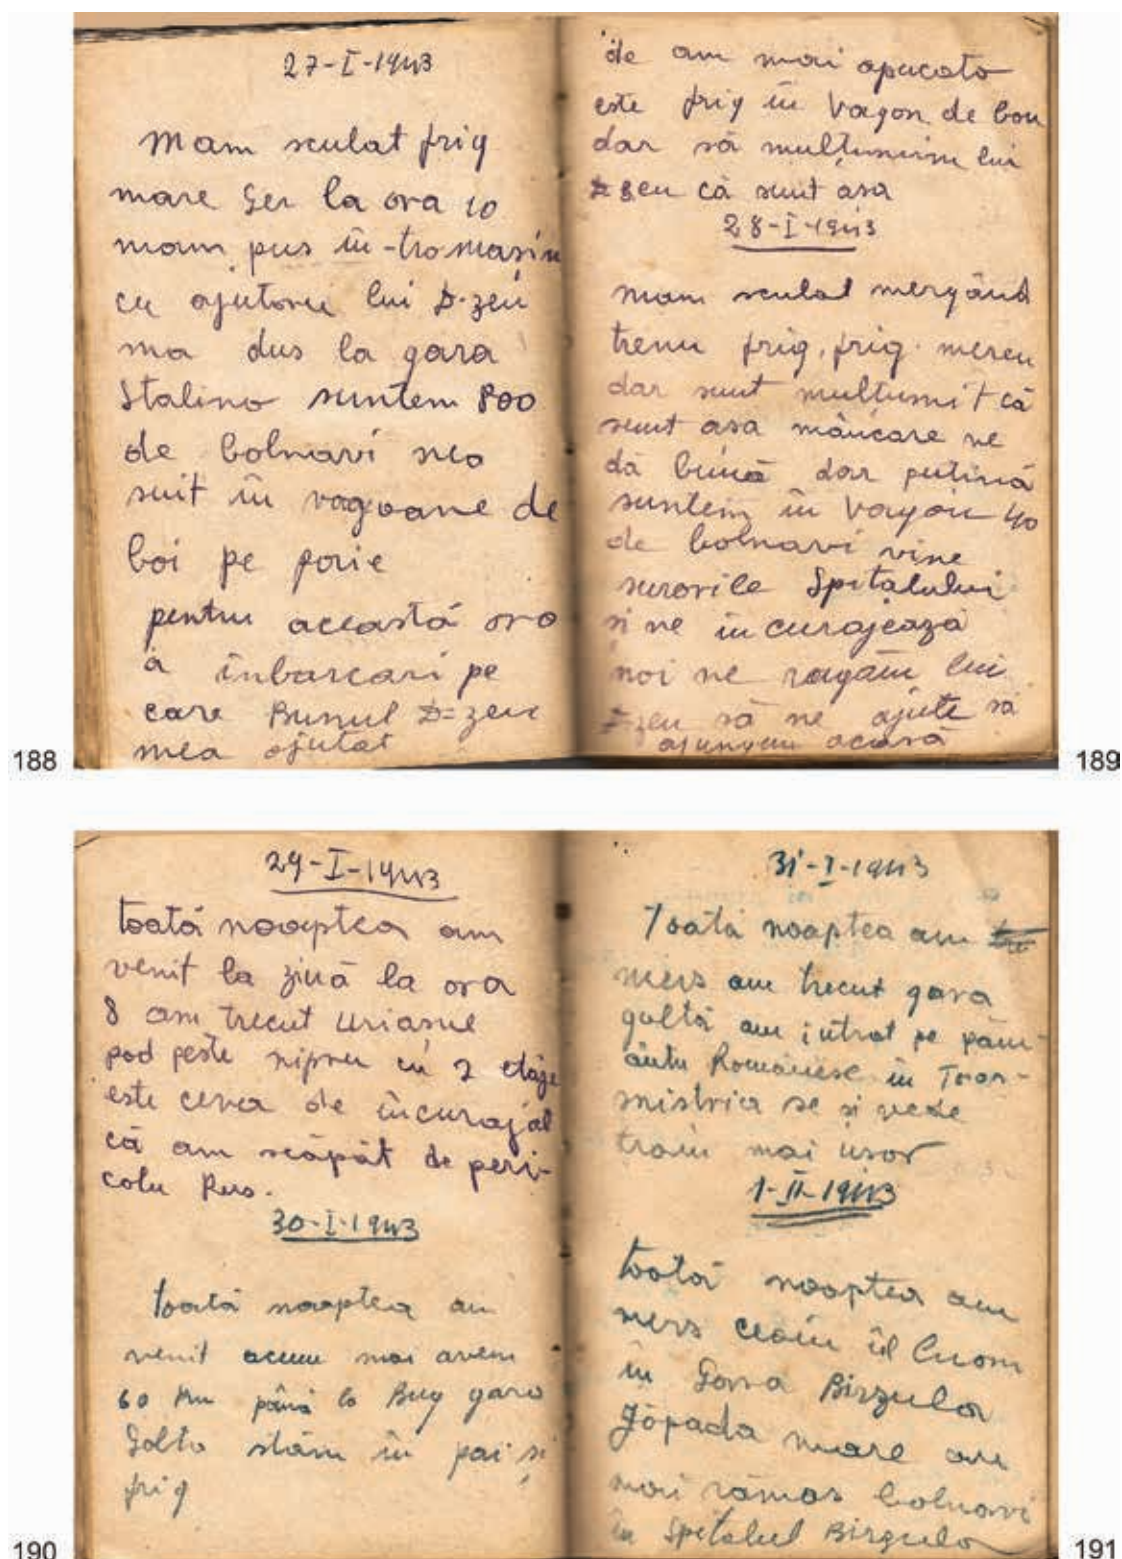 27-I-1943
Mam sculat frig
mare Ger la ora 10
mam pus în-tro mașin
cu ajutoru lui D-zeu
ma dus la gara
Stalino suntem 800
de bolnavi nea
suit în vagoane de
boi pe
pentru această ora
a înbarcari pe
care Bunul D=zeu
mea ajutat
188
de am mai apucato
este frig în Vagon de bou
dar să mulțumim lui
D zeu că sunt așa
28-I-1943
mam sculat mergând
trenu frig, frig mereu
dar sunt multumit că
sunt asa mâncare ne
dă bună dar putină
suntem în Vagon 40
de bolnavi vine
surorile Spitalului
și ne încurajează
noi ne rugăm lui
D=zeu să ne ajute să
ajungem acasă
189
29-I-1943
toată noaptea am
venit la ziuă la ora
8 am trecut uriasul
pod peste nipru cu 2 etaje
este ceva de încurajat
că am scăpăt de peri-
colu Rus.
30-I-1943
toată noaptea am
venit acum mai avem
60 km până la Bug gara
Golta stăm în pai și
frig
190
31-I-1943
Toată noaptea am
mers am trecut gara
goltă am intrat pe păm-
ântu Românesc în Tran-
nistria se și vede
traiu mai usor
1-II-1943
toată noaptea am
mers ceaiu îl
în Gara Birzula
Zăpada mare au
mai rămas bolnavi
în Spitalul Birzula
191